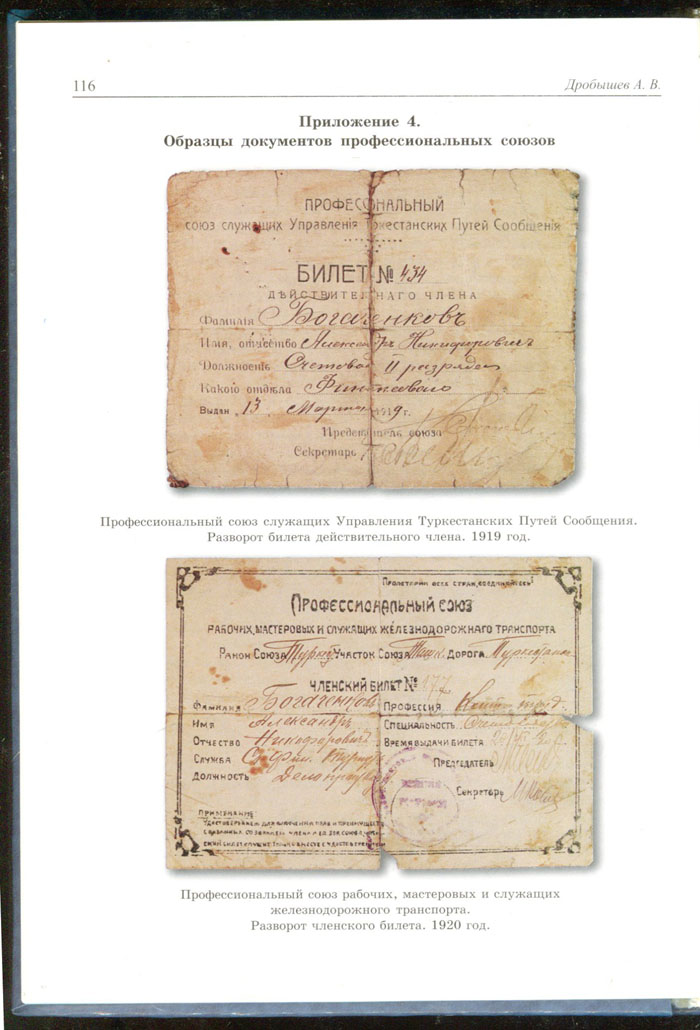 116
Дробышев А. В.
Приложение 4.
Образцы документов профессиональных союзов
ПРОФЕССІОНАЛЬНЫЙ
союз служащих Управленія Туркестанских Путей Сообщенія
БИЛЕТ № 434
ДѢЙСТВИТЕЛЬНАГО ЧЛЕНА
Фамилія Богаченковъ
Имя, отчество Александръ Никифоровичъ
Должность Счетовод II разряда
Какого отдѣла
Выдан 13 Марта 1919 г.
Председатель союза
Секретарь
Профессиональный союз служащих Управления Туркестанских Путей Сообщения.
Разворот билета действительного члена. 1919 год.
Пролетарии всех стран, соединяйтесь!
Профессиональный союз
рабочих, мастеровых и служащих железнодорожного транспорта
Район Союза Турк Участок Союза Таш. Дорога
Членский билет № 177
Фамилия Богаченковъ
Профессия
Имя Александръ
Специальность
Отчество Никифоровичъ
Время выдачи билета
Служба
Председатель
Должность
Секретарь
Примечание
Профессиональный союз рабочих, мастеровых и служащих
железнодорожного транспорта.
Разворот членского билета. 1920 год.